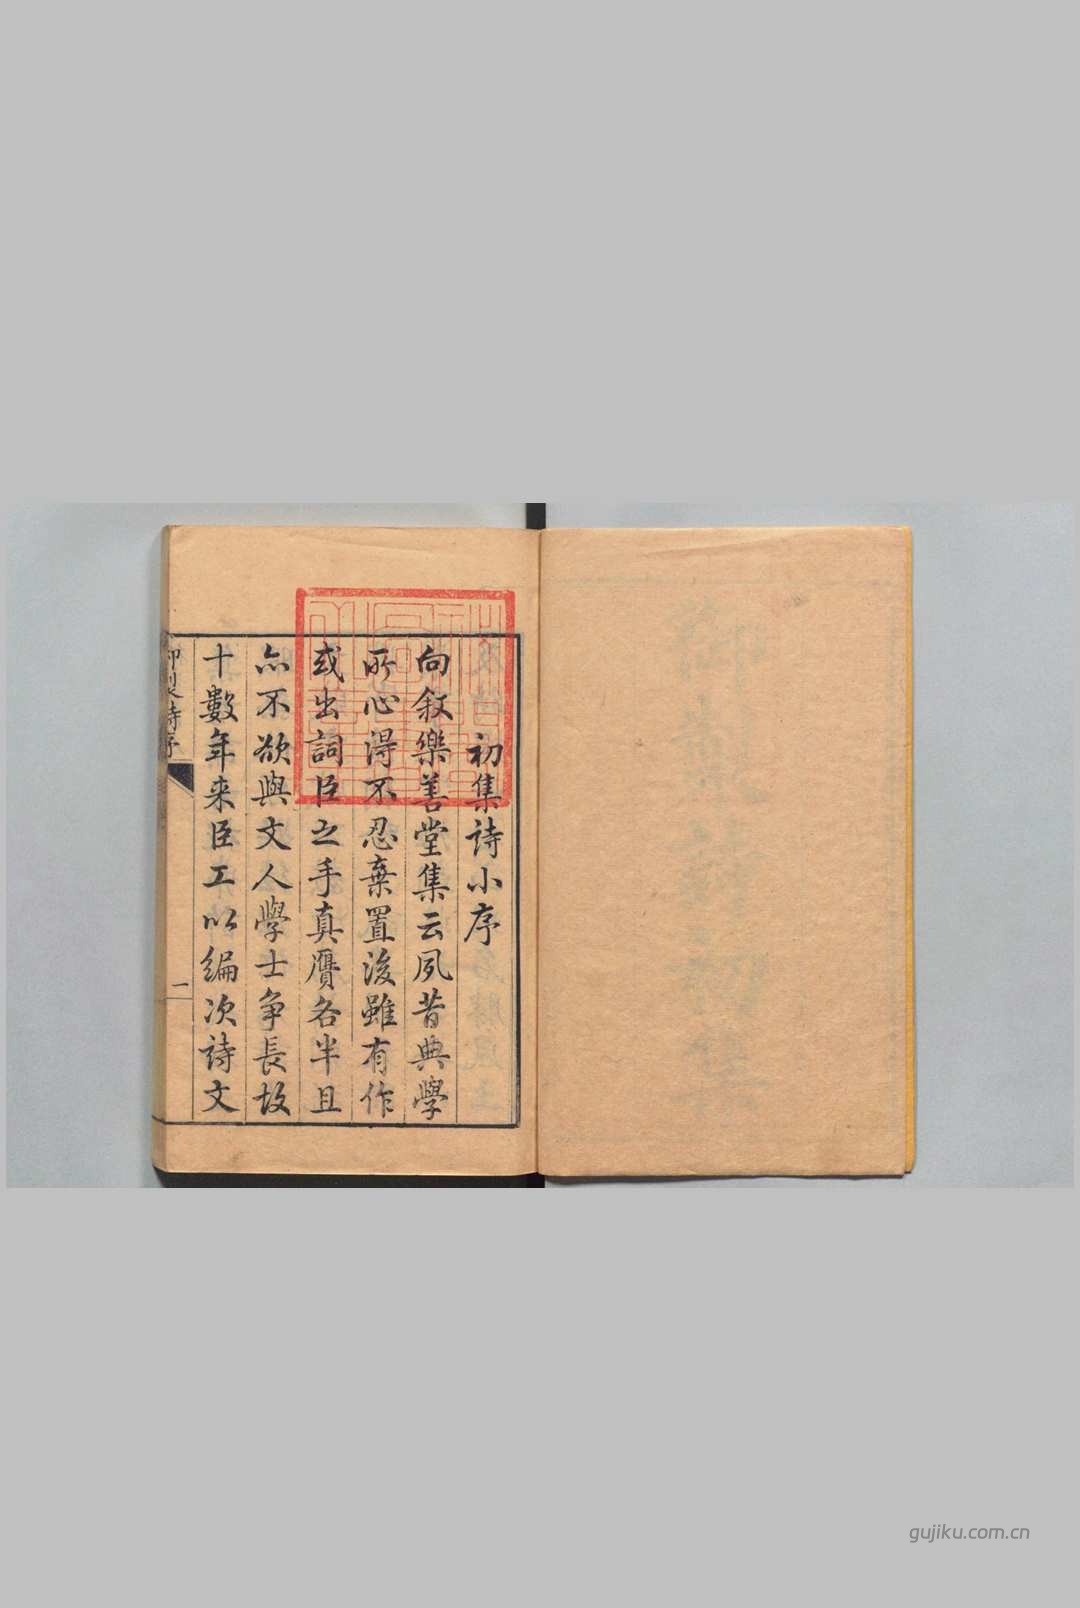 初集詩小序
向敘樂善堂集云夙昔典學
所心得不忍棄置後雖有作
或出詞臣之手真贗各半且
亦不欲與文人學士爭長故
十數年来臣工以編次詩文
御製詩序
一
gujiku.com.cn